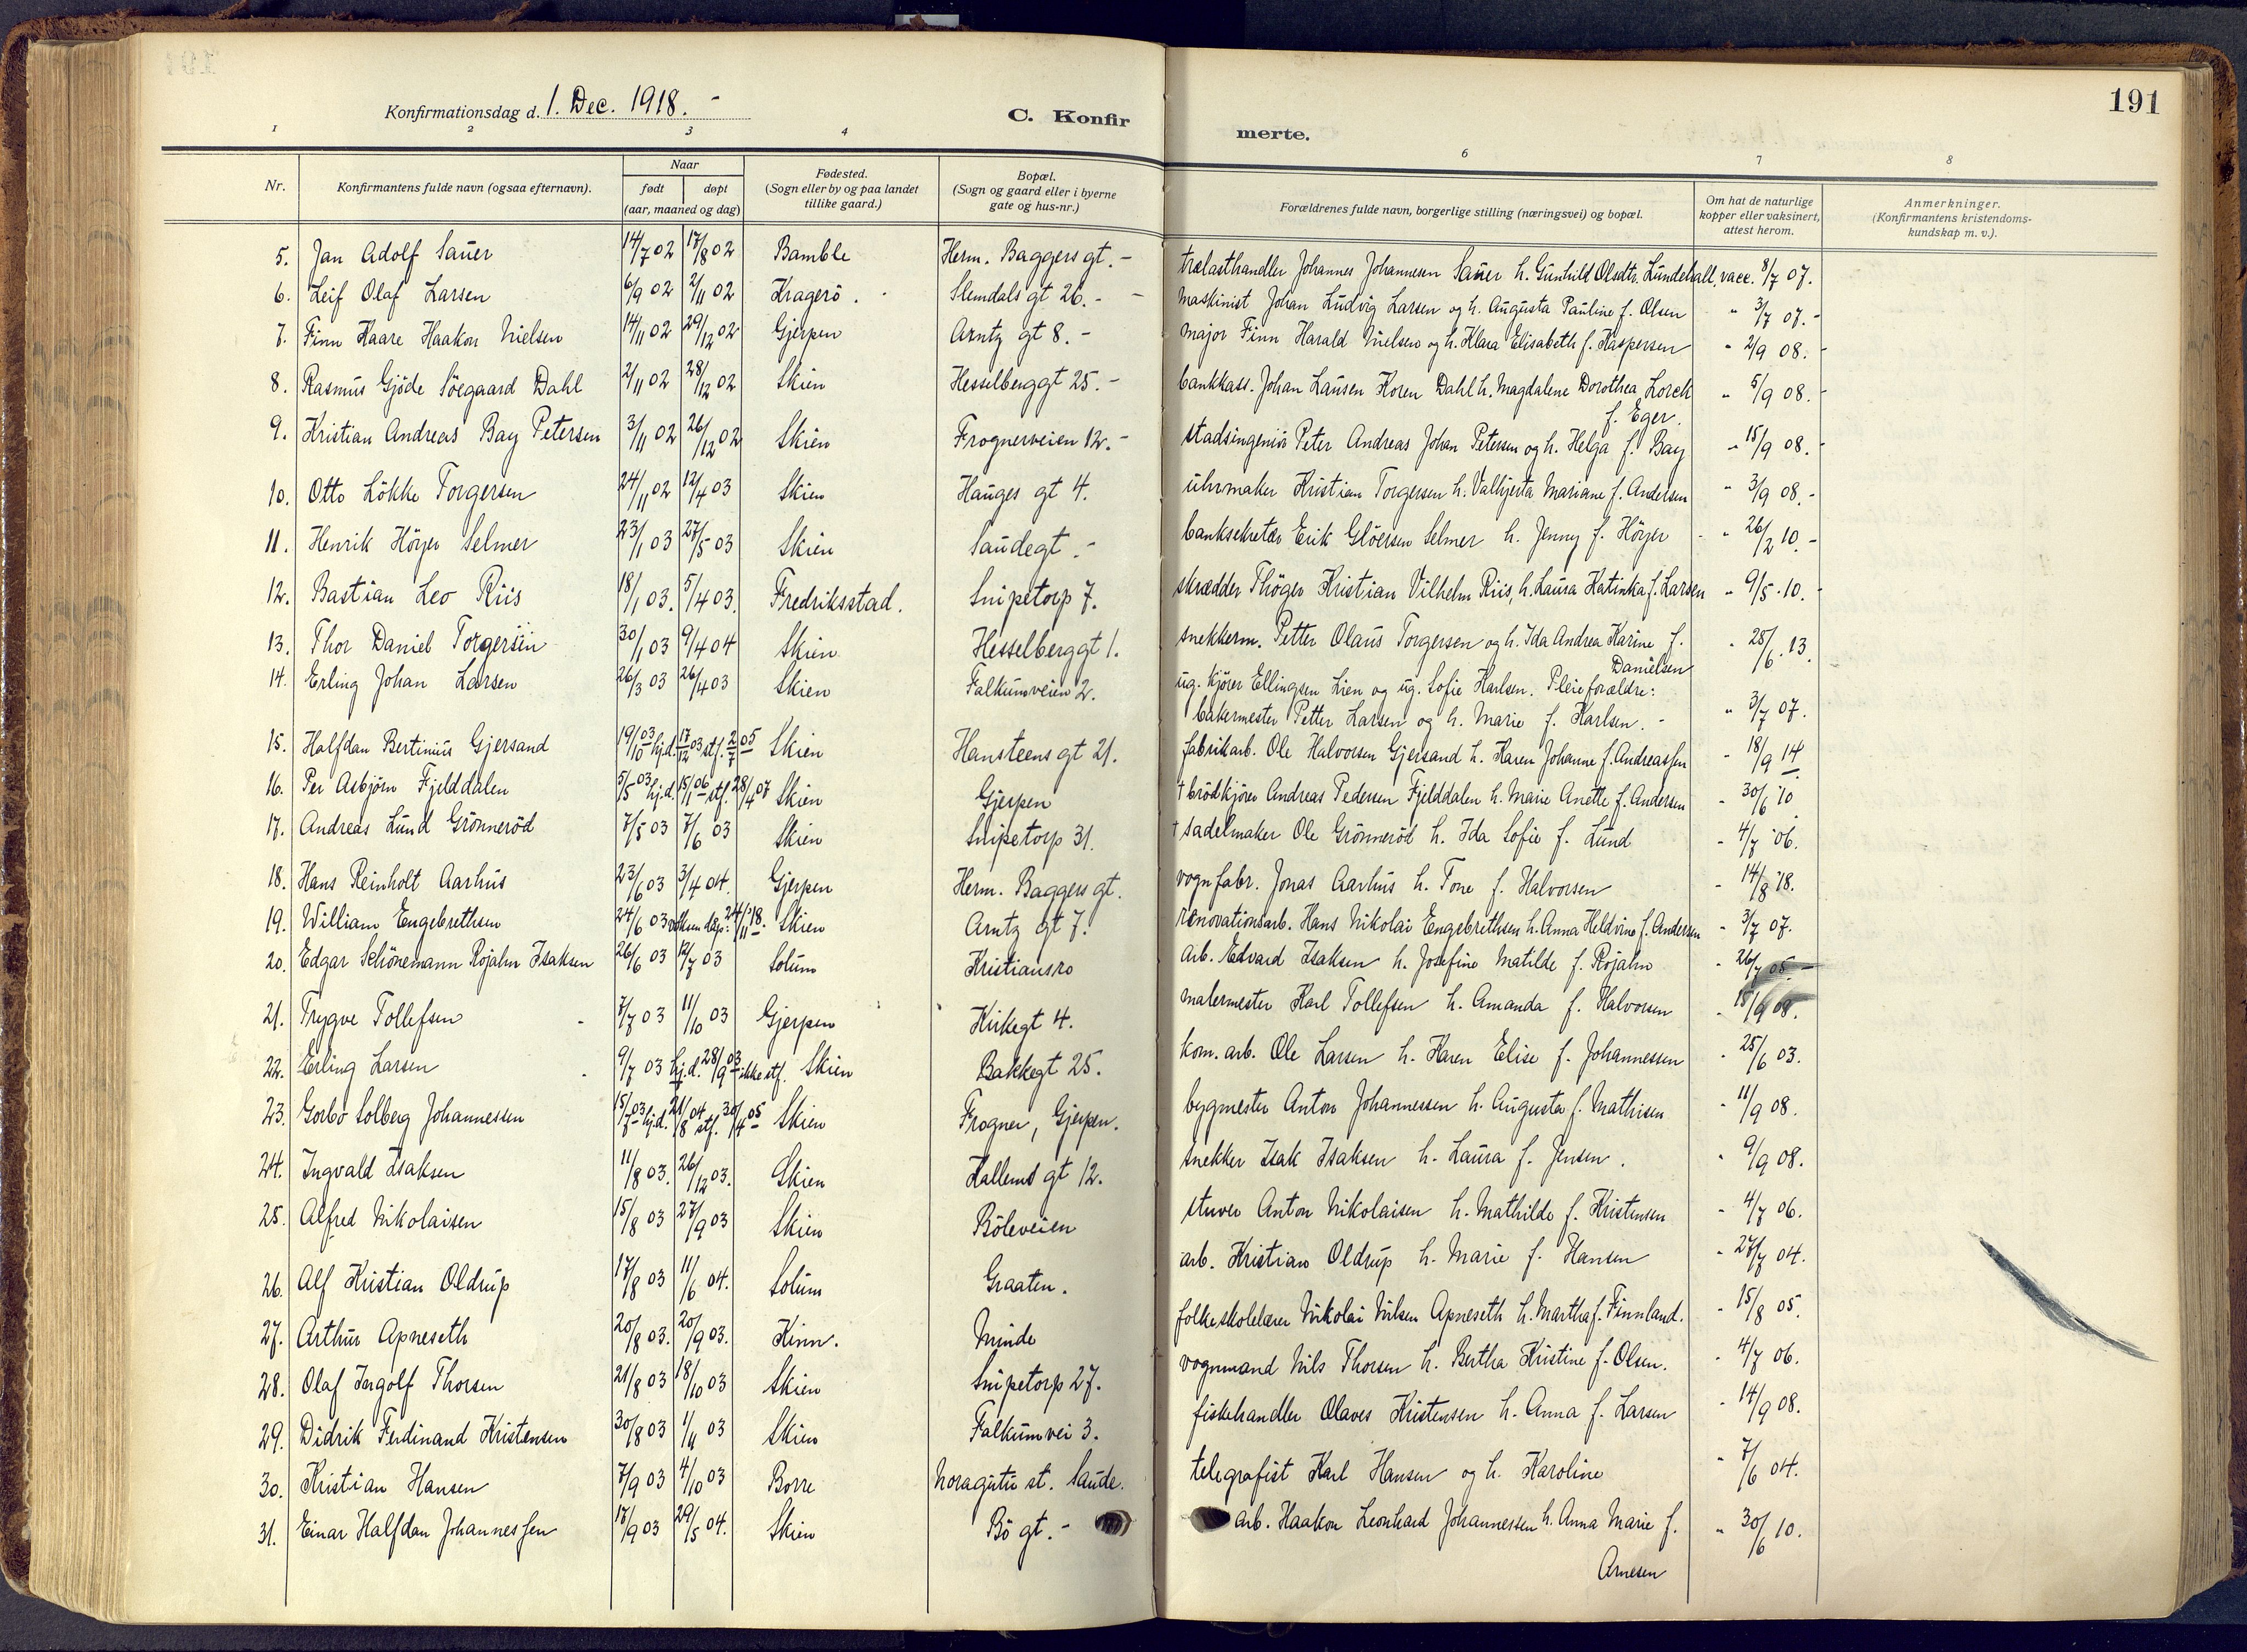 191
Konfirmationsdag d. 1. Dec. 1918. -
C. Konfirmerte.
1 2 3 4 6 7 8
Nr.
Konfirmantens fulde navn (ogsaa efternavn).
Naar
født døpt
(aar, maaned og dag)
Fødested.
(Sogn eller by og paa landet
tillike gaard.)
Bopæl.
(Sogn og gaard eller i byerne
gate og hus-nr.)
Forældrenes fulde navn, borgerlige stilling (næringsvei) og bopæl.
Om hat de naturlige
kopper eller vaksinert,
attest herom.
Anmerkninger.
(Konfirmantens kristendoms-
kundskap m. v.).
5. Jan Adolf Sauer 14/7 02 17/8 02 Bamble Herm. Baggers gt. - trælasthandler Johannes Johannesen Sauer h. Gunhild Olsdtr. Lundehall, vacc. 8/7 07.
6. Leif Olaf Larsen 6/9 02 2/11 02 Kragerö. Slemdals gt 26. - maskinist Johan Ludvig Larsen og h. Augusta Pauline f. Olsen " 3/7 07. -
7. Finn Kaare Haakon Nielsen 14/11 02 29/12 02 Gjerpen Arntz gt 8. - major Finn Harald Nielsen og h. Klara Elisabeth f. Kaspersen " 2/9 08. -
8. Rasmus Gjöde Söegaard Dahl 2/11 02 28/12 02 Skien Hesselberggt 25. - bankkass. Johan Lausen Koren Dahl h. Magdalene Dorothea Lorck " 5/9 08. -
f. Eger.
9. Kristian Andreas Bay Petersen 3/11 02 26/12 02 Skien Frognerveien 12. - stadsingeniör Peter Andreas Johan Petersen og h. Helga f. Bay " 15/9 08. -
10. Otto Lökke Torgersen 24/11 02 12/4 03 Skien Hauges gt 4. uhrmaker Kristian Torgersen h. Valhjerta Mariane f. Andersen " 3/9 08. -
11. Henrik Höyer Selmer 23/1 03 27/5 03 Skien Saudegt. - banksekretær Erik Glöersen Selmer h. Jenny f. Höyer " 26/2 10. -
12. Bastian Leo Riis 18/1 03. 5/4 03. Fredriksstad. Snipetorp 7. skrædder Thöger Kristian Vilhelm Riis, h. Laura Katinka f. Larsen " 9/5. 10. -
13. Thor Daniel Torgersen 30/1 03 9/4 04 Skien Hesselberggt 1. snekkerm. Petter Olaus Torgersen og h. Ida Andrea Karine f. " 28/6. 13.
Danielsen
14. Erling Johan Larsen 26/3 03 26/4 03 Skien Falkumveien 2. ug. kjörer Ellingsen Lien og ug. Sofie Karlsen. Pleieforældre:
bakermester Petter Larsen og h. Marie f. Karlsen. - " 3/7 07.
15. Halfdan Bertinius Gjersand 19/10 03 hj.d. 17/12 03 stf. 2/7 05 Skien Hansteens gt 21. fabrikarb. Ole Halvorsen Gjersand h. Karen Johanne f. Andreassen " 18/9 14.
16. Per Asbjörn Fjelddalen 5/5 03 hj.d. 15/1 06 stf. 28/4 07 Skien Gjerpen † brödkjörer Andreas Pedersen Fjelddalen h. Marie Anette f. Andersen " 30/6 10.
17. Andreas Lund Grönneröd 7/5 03 7/6 03 Skien Snipetorp 31. † sadelmaker Ole Grönneröd h. Ida Sofie f. Lund " 4/7 06.
18. Hans Reinholt Aarhus 23/6 03 3/4 04. Gjerpen Herm. Baggers gt. vognfabr. Jonas Aarhus h. Tone f. Halvorsen " 14/8 18.
19. William Engebrethsen 24/6 03 voksen døpt 24/11 18. Skien Arntz gt 7. renovationsarb. Hans Nikolai Engebrethsen h. Anna Heldvine f. Andersen " 3/7 07.
20. Edgar Schönemann Rojahn Isaksen 26/6 03 12/7 03 Solum Kristiansro arb. Edvard Isaksen h. Josefine Matilde f. Rojahn " 26/7 05. -
21. Trygve Tollefsen 7/7 03 11/10 03 Gjerpen Kirkegt 4. malermester Karl Tollefsen h. Amanda f. Halvorsen " 15/9 08.
22. Erling Larsen 9/7 03 hj.d. 28/9 03 ikke stf. Skien Bakkegt 25. kom. arb. Ole Larsen h. Karen Elise f. Johannessen " 25/6 03.
23. Gorbo Solberg Johannessen 15/7 03 hj.d. 21/8 04 stf. 30/4 05 Skien Frogner, Gjerpen. bygmester Anton Johannessen h. Augusta f. Mathisen " 11/9 08.
24. Ingvald Isaksen 11/8 03. 26/12 03. Skien Kallems gt 12. snekker Isak Isaksen h. Laura f. Jensen. " 9/9 08.
25. Alfred Nikolaisen 15/8 03 27/9 03 Skien Böleveien stuver Anton Nikolaisen h. Mathilde f. Kristensen " 4/7 06.
26. Alf Kristian Oldrup 17/8 03 11/6 04. Solum Graaten. arb. Kristian Oldrup h. Marie f. Hansen " 27/7 04.
27. Arthur Apneseth 20/8 03. 20/9 03. Kinn. Minde folkeskolelærer Nikolai Nilsen Apneseth h. Martha f. Finnland. " 15/8 05.
28. Olaf Ingolf Thorsen 21/8 03 18/10 03 Skien Snipetorp 27. vognmand Nils Thorsen h. Bertha Kristine f. Olsen. " 4/7 06.
29. Didrik Ferdinand Kristensen 30/8 03 1/11 03 Skien Falkumvei 3. fiskehandler Olaves Kristensen h. Anna f. Larsen " 14/9 08.
30. Kristian Hansen 7/9 03 4/10 03 Borre Noragutu st. Saude. telegrafist Karl Hansen og h. Karoline " 7/6 04.
31. Einar Halfdan Johannessen 17/9 03 29/5 04. Skien Bö gt. - arb. Haakon Leonhard Johannessen h. Anna Marie f. " 30/6 10.
Arnesen